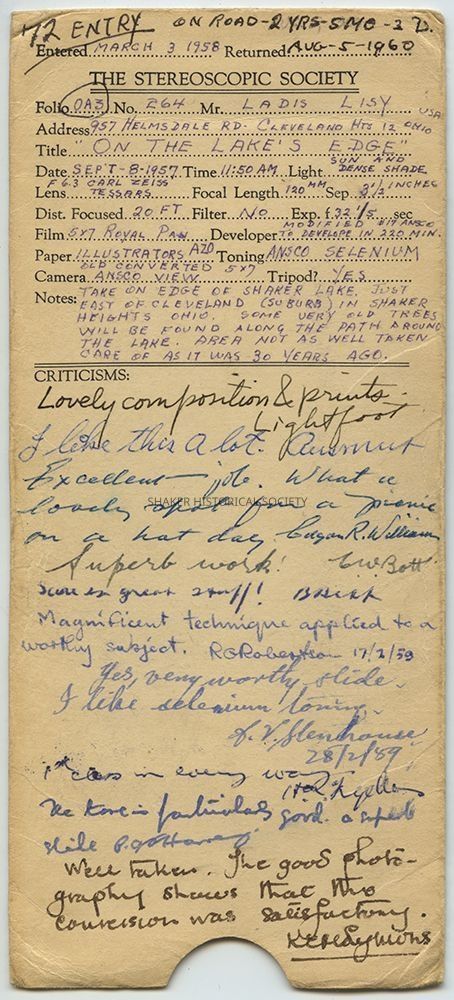 '72 ENTRY ON ROAD-2 YRS-5MO-2 D.
Entered MARCH 3 1958 Returned AUG-5-1960
THE STEREOSCOPIC SOCIETY
Folio OA3 No. 264 Mr. LADIS LISY USA
Address 957 HELMSDALE RD. CLEVELAND HTS 12 OHIO
Title "ON THE LAKE'S EDGE"
SUN AND
Date SEPT-8-1957 Time 11:50 AM Light DENSE SHADE
F 6.3 CARL ZEISS
Lens TESSARS Focal Length 120 MM Sep 3 1/2 INCHES
Dist. Focused 20 FT Filter NO Exp. f.32 1/5 sec
MODIFIED #17 ANSCO
Film 5X7 ROYAL PAN Developer TO DEVELOPE IN 220 MIN.
Paper ILLUSTRATORS AZO Toning ANSCO SELENIUM
OLD CONVERTED 5X7
Camera ANSCO VIEW Tripod? YES
Notes: TAKE ON EDGE OF SHAKER LAKE JUST
EAST OF CLEVELAND (SUBURB) IN SHAKER
HEIGHTS OHIO. SOME VERY OLD TREES
WILL BE FOUND ALONG THE PATH AROUND
THE LAKE. AREA NOT AS WELL TAKEN
CARE OF AS IT WAS 30 YEARS AGO.
CRITICISMS:
Lovely composition & prints.
Lightfoot
I like this a lot.
Excellent job. What a
lovely spot for a picnic
SHAKER HISTORICAL SOCIETY
on a hot day Edgar R. Williams
Superb work! CW Bott
Sure is great stuff!
Magnificent technique applied to a
worthy subject. RG Robertson 17/2/59
Yes, very worthy slide.
I like selenium toning.
A. V. Stenhouse
28/2/59
1st class in every way
The tone is particularly good. a superb
slide
Well taken. The good photo-
graphy shows that the
conversion was satisfactory.